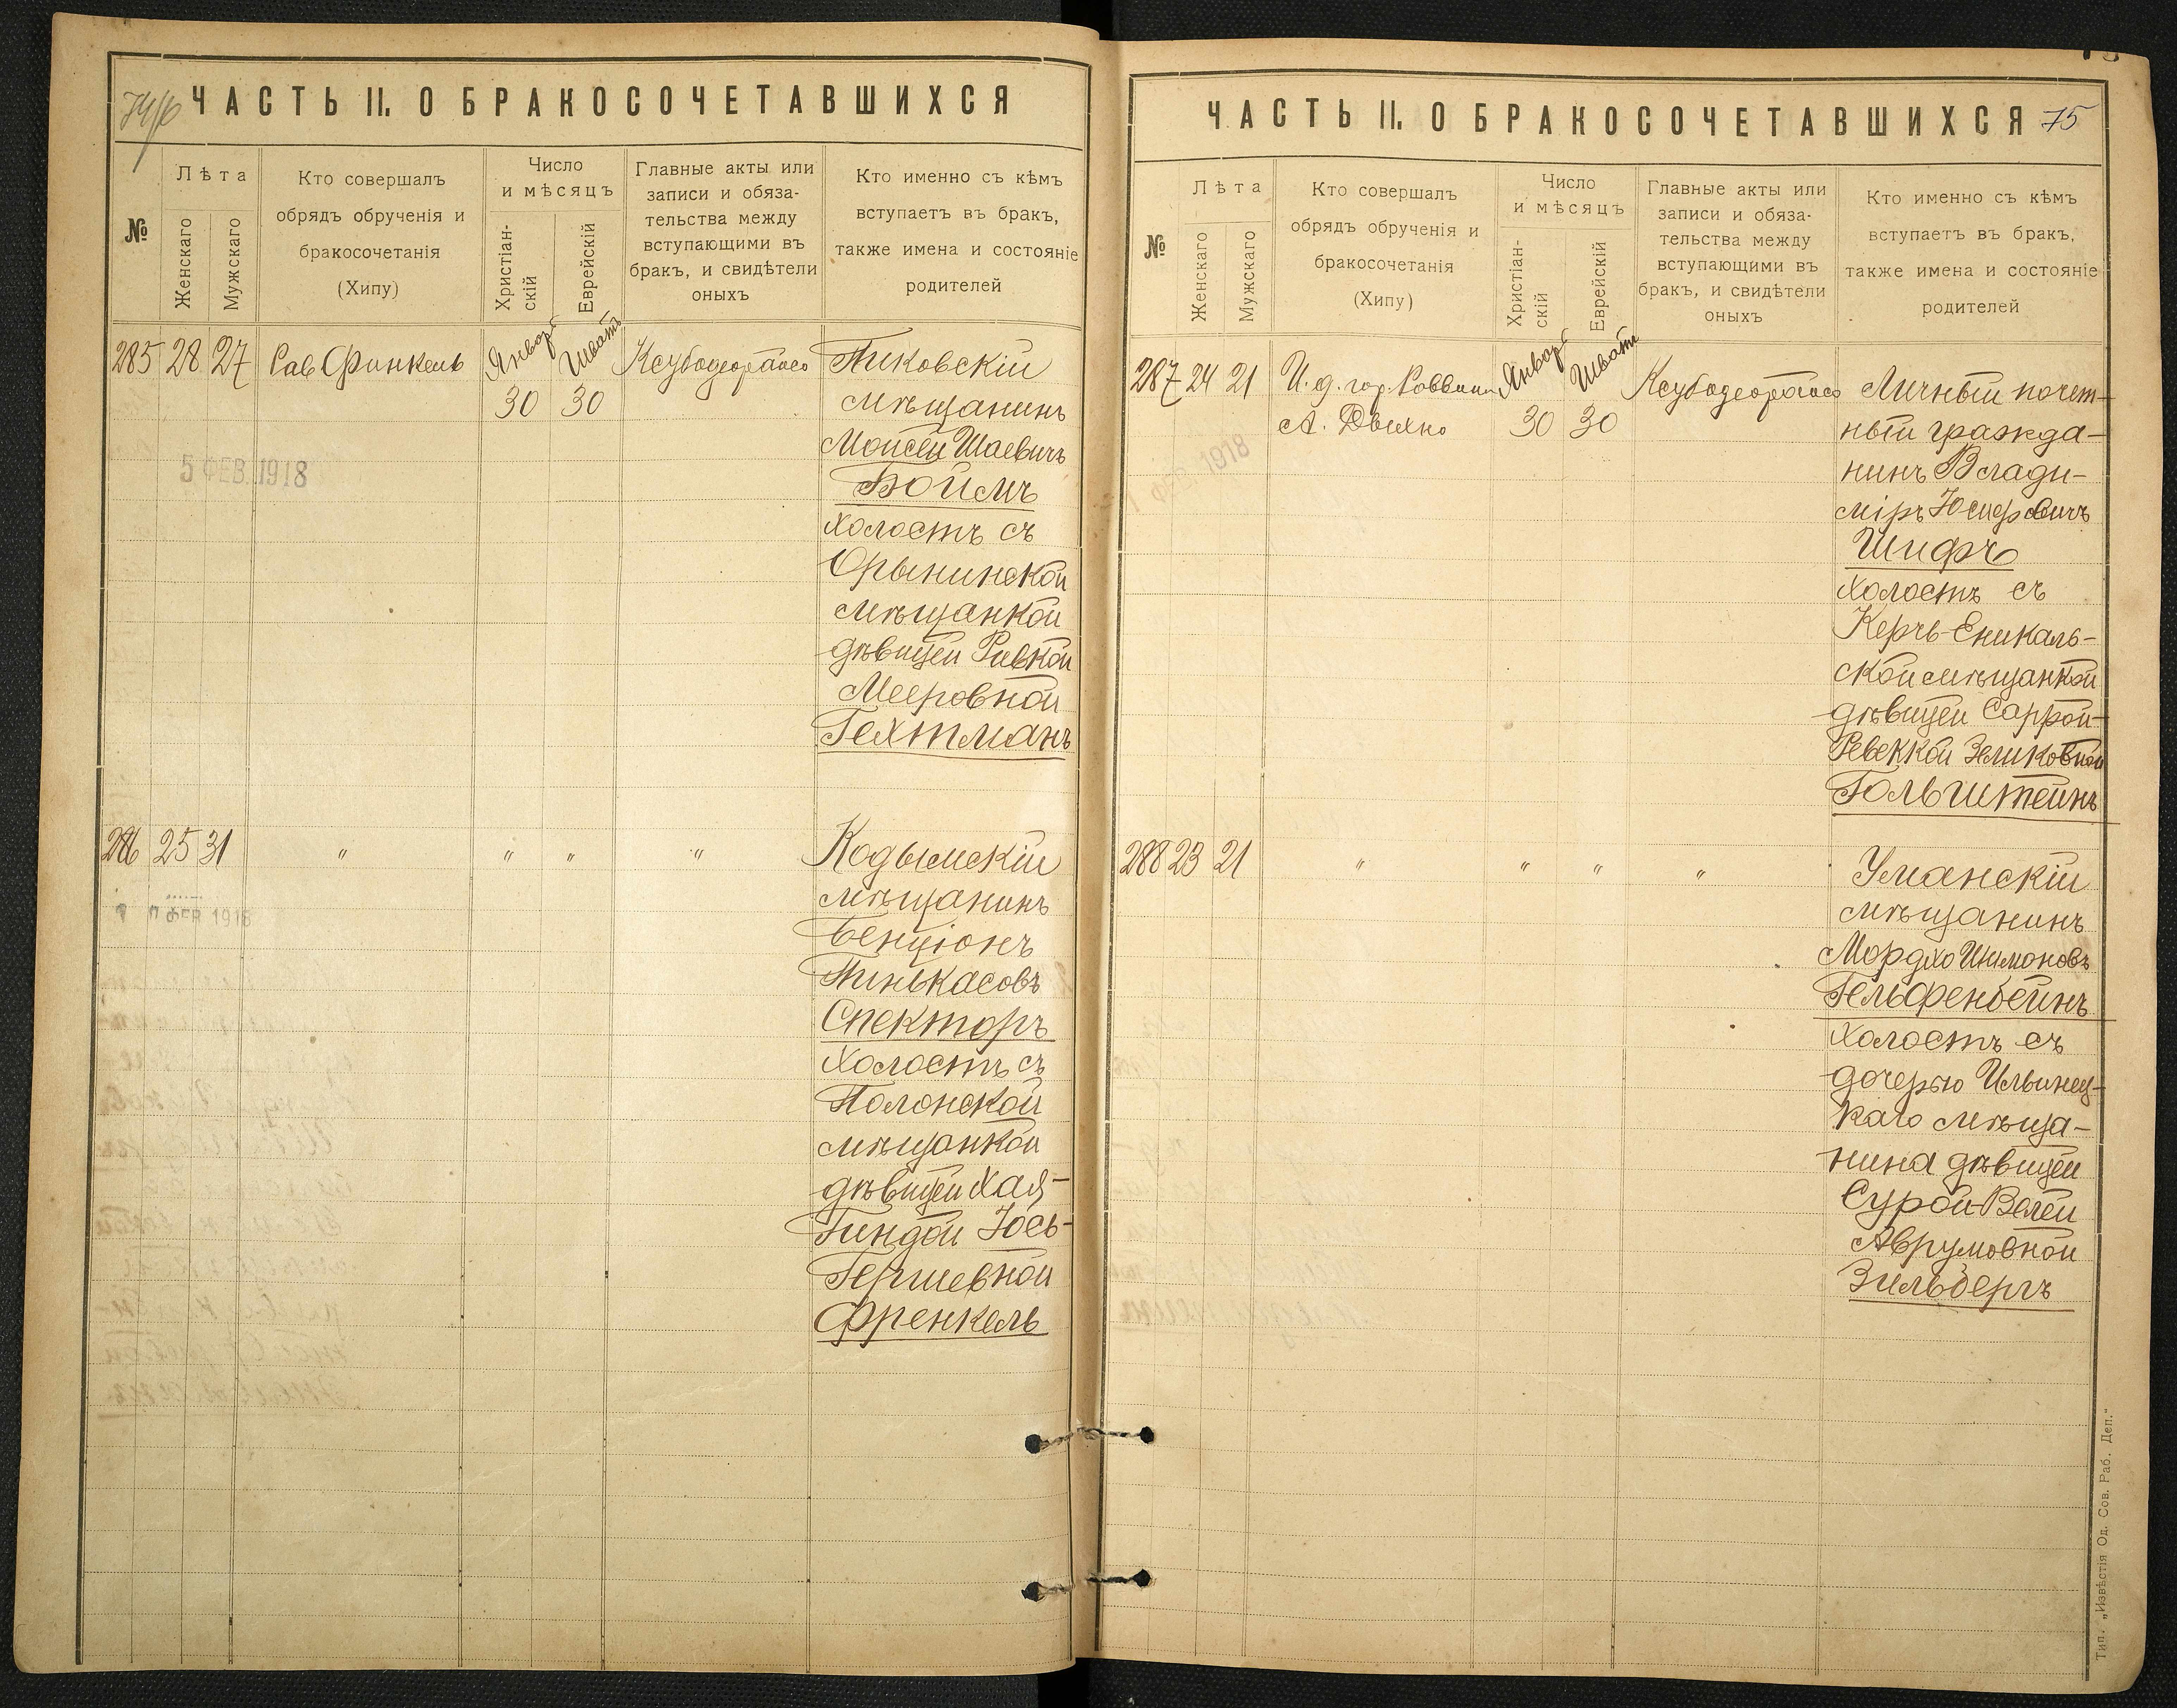 74/об
ЧАСТЬ II. О БРАКОСОЧЕТАВШИХСЯ
№
Лѣта
Женскаго
Мужскаго
Кто совершалъ
обрядъ обрученія и
бракосочетанія
(Хипу)
Число
и мѣсяцъ
Христіан-
скій
Еврейскій
Главные акты или
записи и обяза-
тельства между
вступающими въ
бракъ, и свидѣтели
оныхъ
Кто именно съ кѣмъ
вступаетъ въ бракъ,
также имена и состояніе
родителей
285 28 27 Рав Финкель
Январь
30
Шватъ
30
Пиковскій
мѣщанинъ
Моисей Шаевичъ
Боймъ
холостъ съ
Орынинской
мѣщанкой
дѣвицей Ривкой
Мееровной
Гехтманъ
5 ФЕВ. 1918
286 25 31 " " " "
Кодымскій
мѣщанинъ
Бенціонъ
Пинькасовъ
Спекторъ
холостъ съ
Полонской
мѣщанкой
дѣвицей Хая-
Гиндой Іось-
Гершевной
Френкель
ФЕВ 1918
ЧАСТЬ II. О БРАКОСОЧЕТАВШИХСЯ
75
№
Лѣта
Женскаго
Мужскаго
Кто совершалъ
обрядъ обрученія и
бракосочетанія
(Хипу)
Число
и мѣсяцъ
Христіан-
скій
Еврейскій
Главные акты или
записи и обяза-
тельства между
вступающими въ
бракъ, и свидѣтели
оныхъ
Кто именно съ кѣмъ
вступаетъ въ бракъ,
также имена и состояніе
родителей
287 24 21 И. д. гор. Раввина
А.
Январь
30
Шватъ
30
Личный почет-
ный гражда-
нинъ Влади-
міръ Іосифовичъ
Шифъ
холостъ съ
Керчь-Еникаль-
ской мѣщанкой
дѣвицей Саррой-
Ревеккой Зеликовной
Гольштейнъ
1918
288 23 21 " " " "
Уманскій
мѣщанинъ
Мордхо Шимоновъ
Гельфенбейнъ
холостъ съ
дочерью Ильинец-
каго мѣща-
нина дѣвицей
Сурой-Велей
Аврумовной
Зильберъ
Тип. „Извѣстія Од. Сов. Раб. Деп."